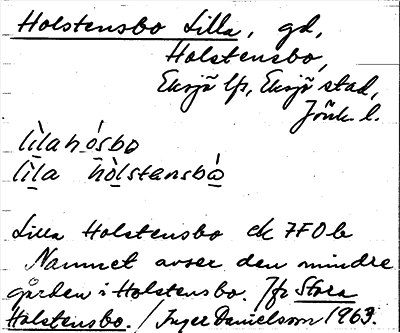 Holstensbo Lilla, gd,
Holstensbo,
Eksjö lfs, Eksjö stad,
Jönk. l.
lìla hósbo
lìla hòlstansbó
Lilla Holstensbo ek 7F0b
Namnet avser den mindre
gården i Holstensbo. Jfr Stora
Holstensbo. / Inger Danielsson 1969.